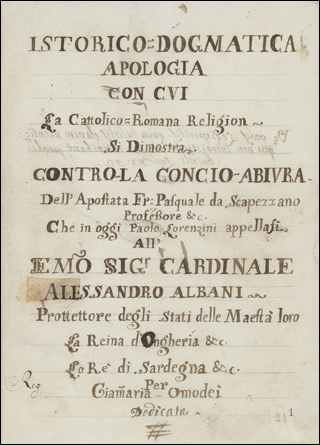 ISTORICO=DOGMATICA
APOLOGIA
CON CVI
La Cattolico=Romana Religion
Si Dimostra
CONTRO-LA CONCIO-ABIVRA
Dell'Apostata Fr: Pasquale da Scapezzano
Profeſsore &c.
Che in oggi Paolo Lorenzini appellaſi
All'
EMO SIGR CARDINALE
ALESSANDRO ALBANI
Prottettore degli Stati delle Maestà loro
La Reina d'Ongheria &c.
Lo Re di Sardegna &c.
Per
Giam̃aria Omodei
Dedicata
Reg
1